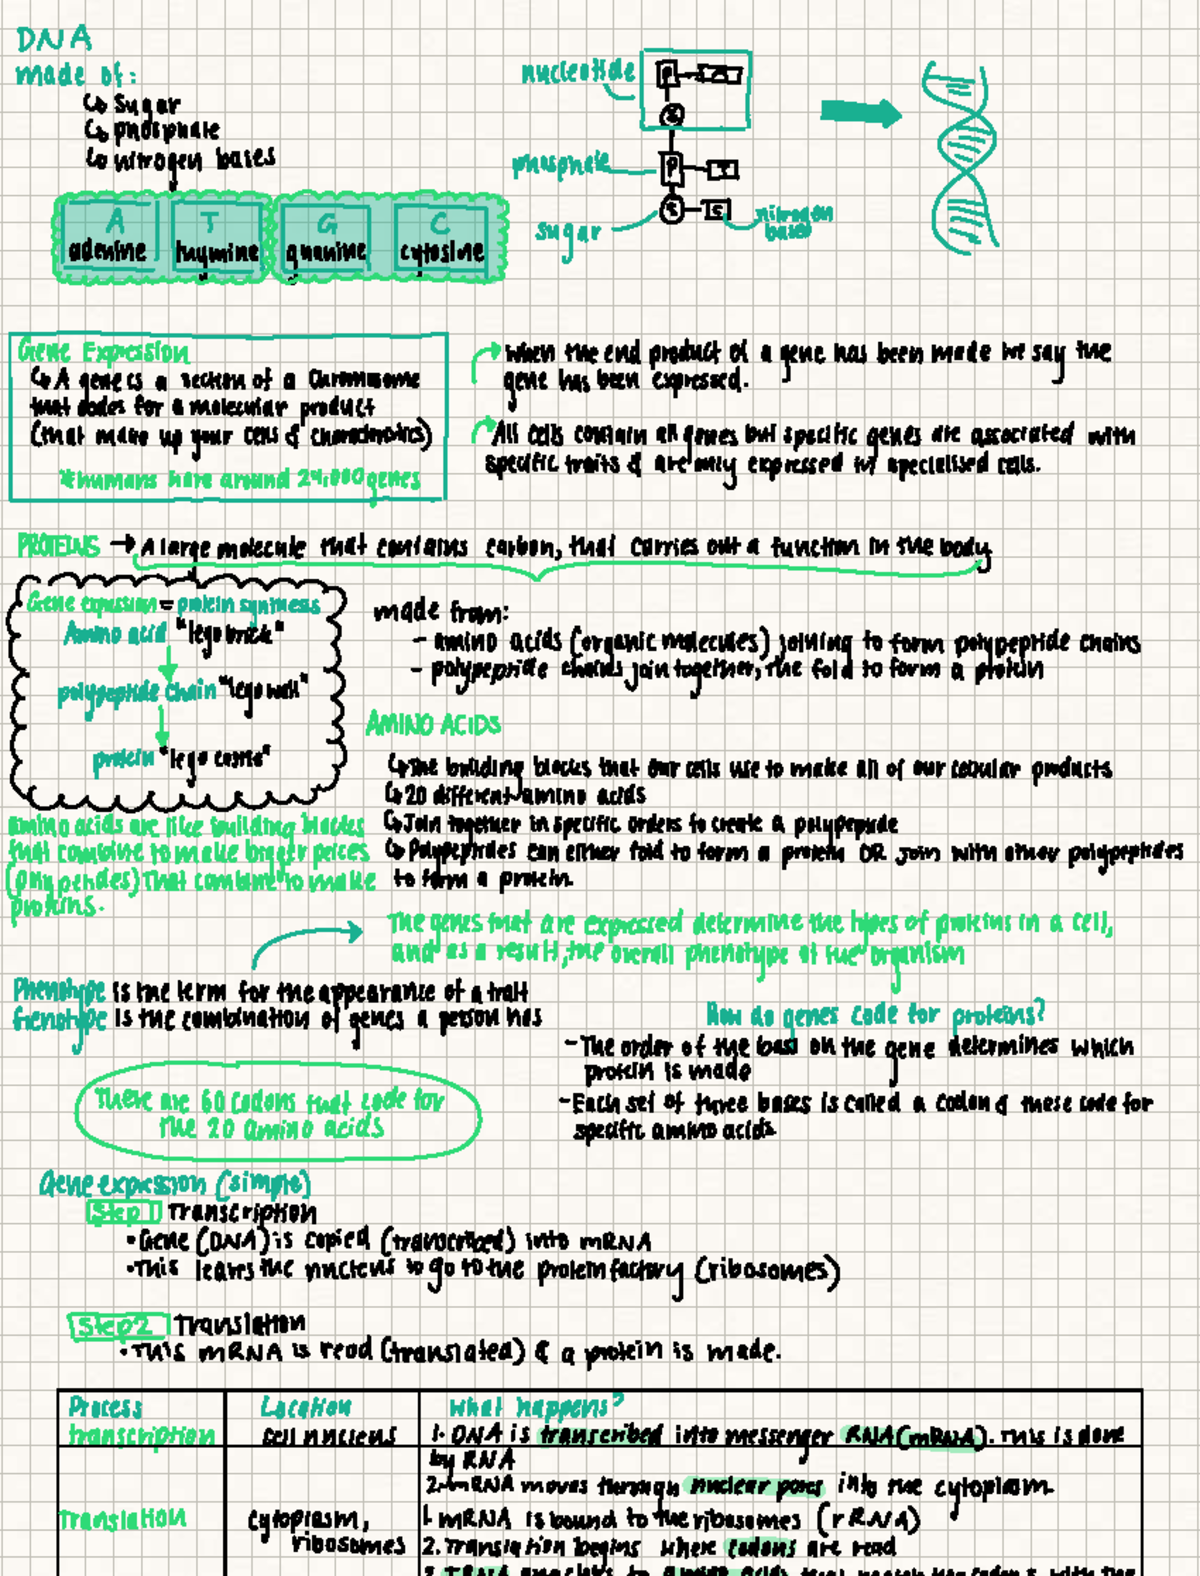 DNA
made of:
↳ Sugar
↳ phosphate
↳ nitrogen bases
A
adenine
T
thymine
G
guanine
C
cytosine
nucleotide
P
S
phosphate
P
T
sugar
S
nitrogen
bases
Gene Expression
↳ A gene is a section of a chromosome
that codes for a molecular product
(that make up your cells & characteristics)
*humans have around 24,000 genes
When the end product of a gene has been made we say the
gene has been expressed.
All cells contain all genes but specific genes are associated with
specific traits & are only expressed w/ specialised cells.
PROTEINS → A large molecule that contains carbon, that carries out a function in the body
Gene expression = protein synthesis
Amino acid "lego brick"
polypeptide chain "lego wall"
protein "lego castle"
made from:
- amino acids (organic molecules) joining to form polypeptide chains
- polypeptide chains join together, the fold to form a protein
AMINO ACIDS
↳ The building blocks that our cells use to make all of our cellular products
↳ 20 different amino acids
↳ Join together in specific orders to create a polypeptide
↳ Polypeptides can either fold to form a protein OR join with other polypeptides
to form a protein.
amino acids are like building blocks
that combine to make bigger peices
that combine to make
proteins.
The genes that are expressed determine the types of proteins in a cell,
and as a result, the overall phenotype of the organism
Phenotype is the term for the appearance of a trait
Genotype is the combination of genes a person has
How do genes code for proteins?
- The order of the base on the gene determines which
protein is made
- Each set of three bases is called a codon & these code for
specific amino acids.
There are 60 codons that code for
the 20 amino acids
Gene expression (simple)
Step 1 Transcription
• Gene (DNA) is copied (transcribed) into mRNA
• This leaves the nucleus to go to the protein factory (ribosomes)
Step 2 Translation
• This mRNA is read (translated) & a protein is made.
Process Location What happens?
transcription cell nucleus 1. DNA is transcribed into messenger RNA (mRNA). This is done
by RNA
2. mRNA moves through nuclear pores into the cytoplasm.
Translation cytoplasm, 1. mRNA is bound to the ribosomes (rRNA)
ribosomes 2. Translation begins where codons are read